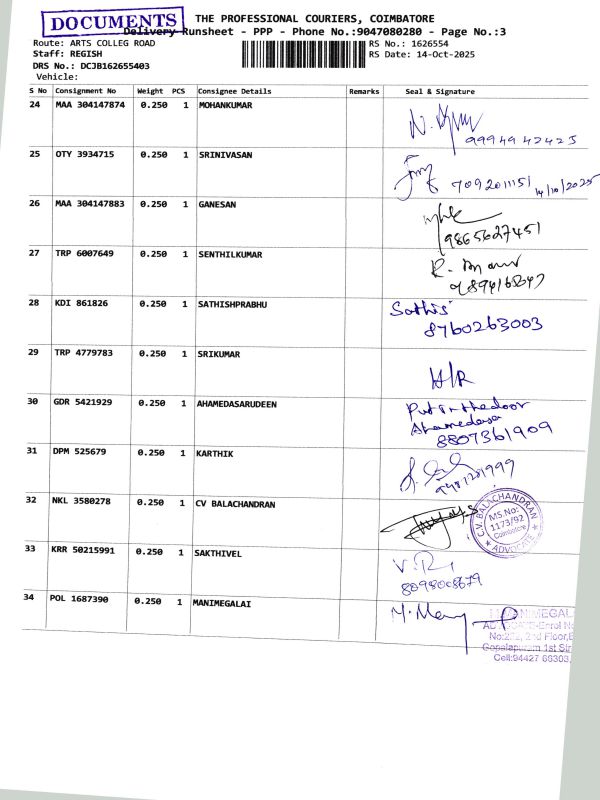 DOCUMENTS
THE PROFESSIONAL COURIERS, COIMBATORE
Delivery Runsheet - PPP - Phone No.:9047080280 - Page No.:3
Route: ARTS COLLEG ROAD
RS No.: 1626554
Staff: REGISH
RS Date: 14-Oct-2025
DRS No.: DCJB162655403
Vehicle:
S No Consignment No Weight PCS Consignee Details Remarks Seal & Signature
24 MAA 304147874 0.250 1 MOHANKUMAR
9994942425
25 OTY 3934715 0.250 1 SRINIVASAN
7092011151 14/10/2025
26 MAA 304147883 0.250 1 GANESAN
9865627451
27 TRP 6007649 0.250 1 SENTHILKUMAR
28 KDI 861826 0.250 1 SATHISHPRABHU
Sathis
8760263003
29 TRP 4779783 0.250 1 SRIKUMAR
H/R
30 GDR 5421929 0.250 1 AHAMEDASARUDEEN
Put on the door
8807361909
31 DPM 525679 0.250 1 KARTHIK
32 NKL 3580278 0.250 1 CV BALACHANDRAN
C.V. BALACHANDRAN
MS No:
1173/92
Coimbatore
ADVOCATE
33 KRR 50215991 0.250 1 SAKTHIVEL
8098008679
34 POL 1687390 0.250 1 MANIMEGALAI
M. Many
MANIMEGAL
2nd Floor,
Gopalapuram 1st Str
Cell:94427 66303,